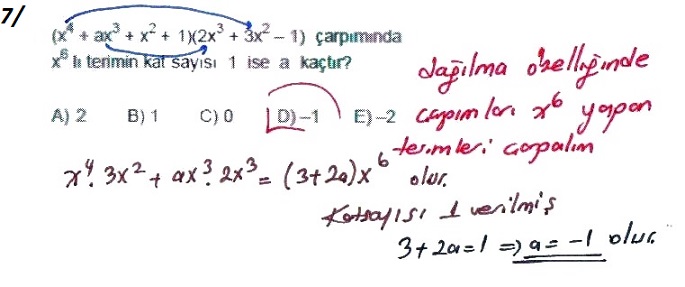 7/
(x⁴ + ax³ + x² + 1)(2x³ + 3x² – 1) çarpımında
x⁶ lı terimin kat sayısı 1 ise a kaçtır?
A) 2 B) 1 C) 0 D) –1 E) –2
dağılma özelliğinde
çarpımları x⁶ yapan
terimleri çarpalım
x⁴. 3x² + ax³. 2x³ = (3+2a)x⁶ olur.
Katsayısı 1 verilmiş
3 + 2a = 1 ⇒ a = –1 olur.